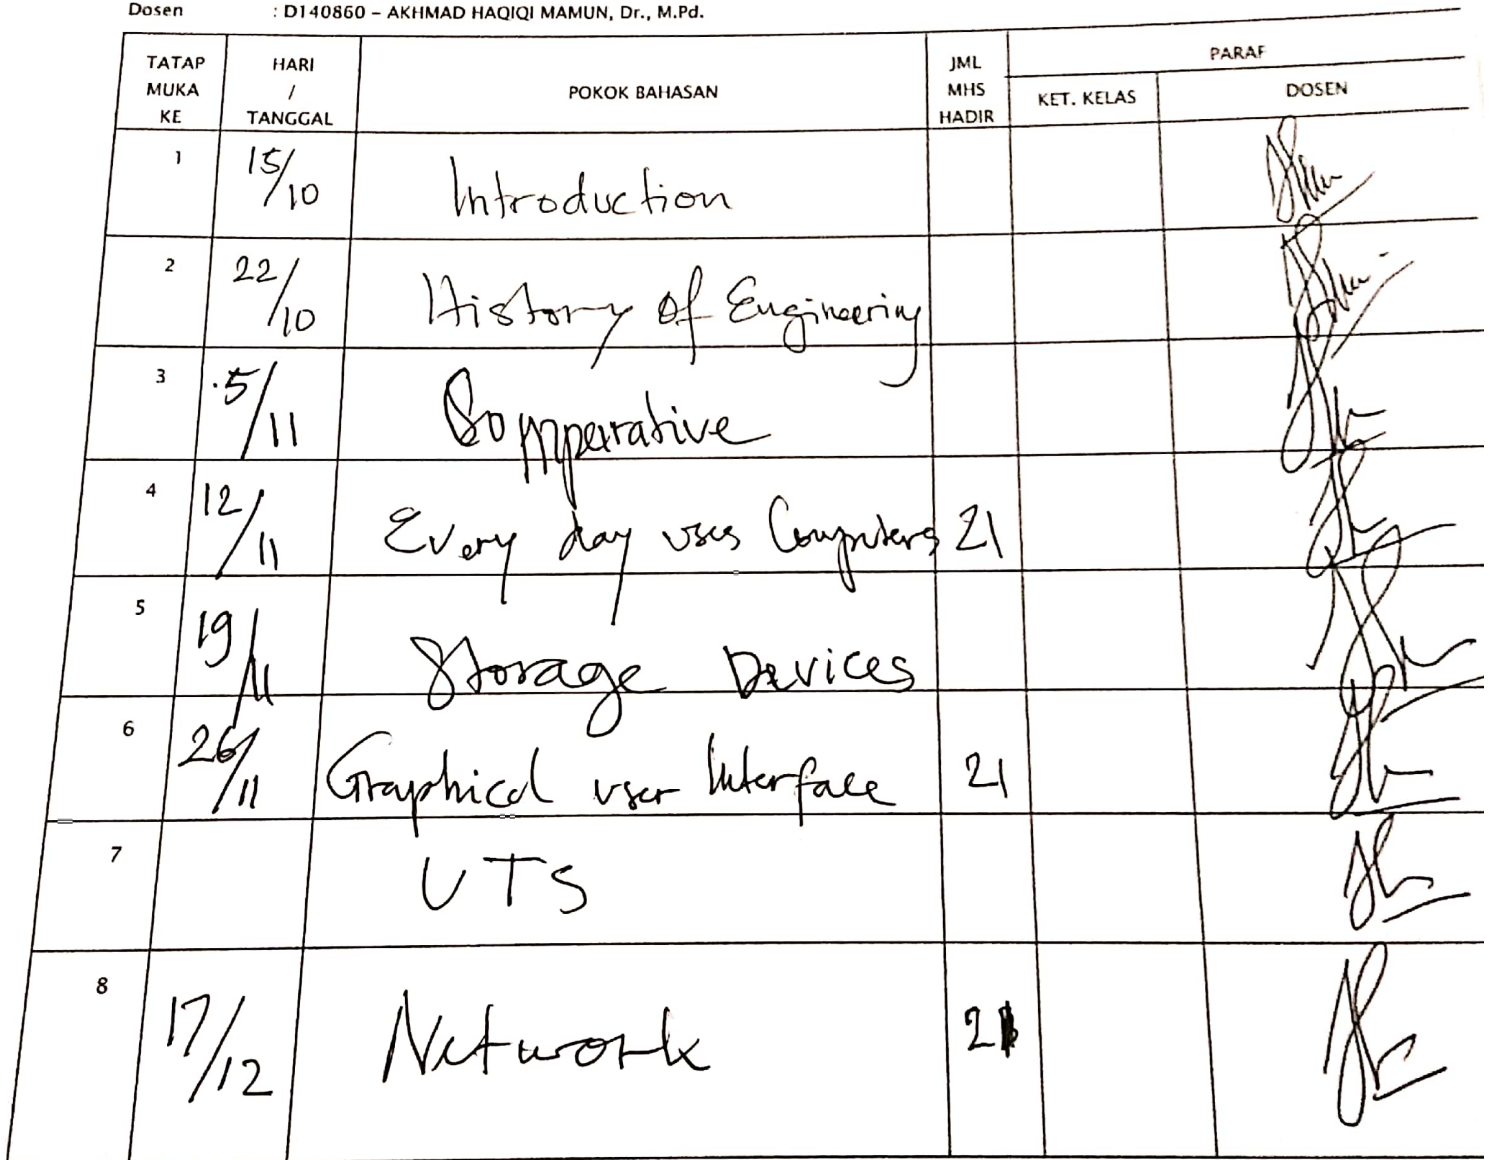 Dosen : D140860 – AKHMAD HAQIQI MAMUN, Dr., M.Pd.
TATAP MUKA KE HARI / TANGGAL POKOK BAHASAN JML MHS HADIR PARAF
KET. KELAS DOSEN
1 15/10 Introduction
2 22/10 History of Engineering
3 5/11 Comperative
4 12/11 Every day uses Computers 21
5 19/11 Storage Devices
6 26/11 Graphical user Interface 21
7 UTS
8 17/12 Network 21